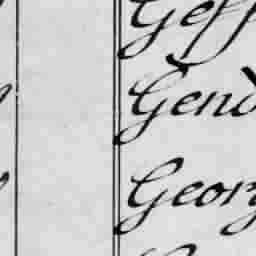 Geff
Gend
Georg